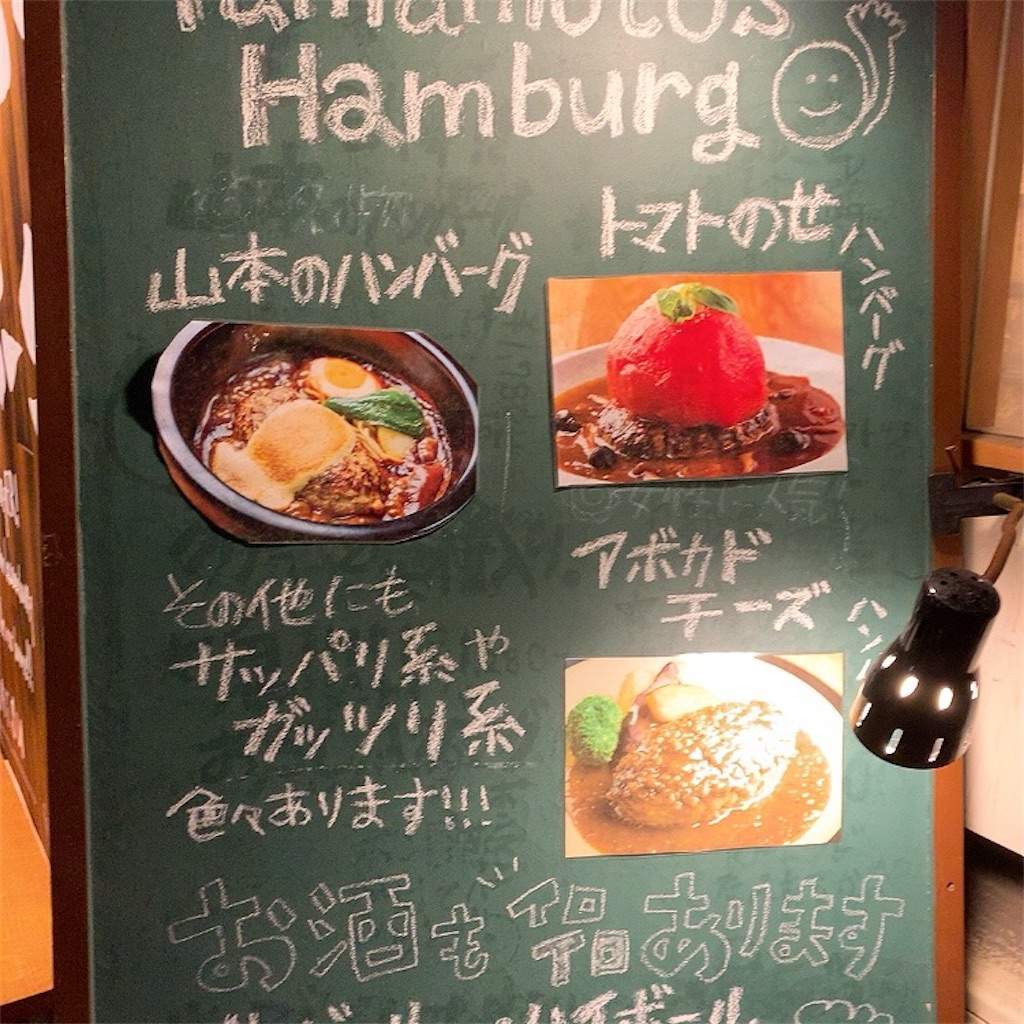 Yamamoto's
Hamburg
山本のハンバーグ
トマトのせ
ハンバーグ
アボカド
チーズ
その他にも
サッパリ系や
ガッツリ系
色々あります!!!
お酒も各種あります
ハイボール